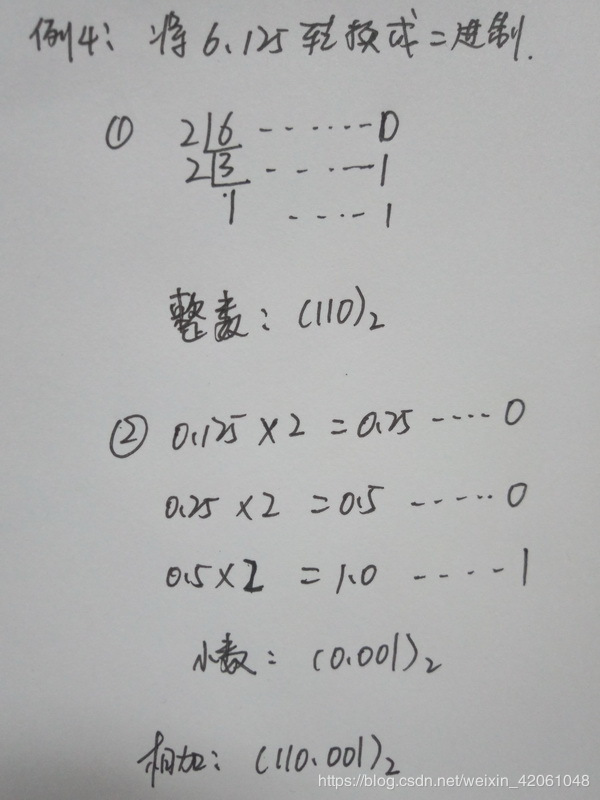 例4: 将6.125转换成二进制.
① 2 6 ------- 0
2 3 - - ---- 1
1 ---- 1
整数: (110)₂
② 0.125 × 2 = 0.25 ---- 0
0.25 × 2 = 0.5 ----- 0
0.5 × 2 = 1.0 ---- 1
小数: (0.001)₂
相加: (110.001)₂
https://blog.csdn.net/weixin_42061048